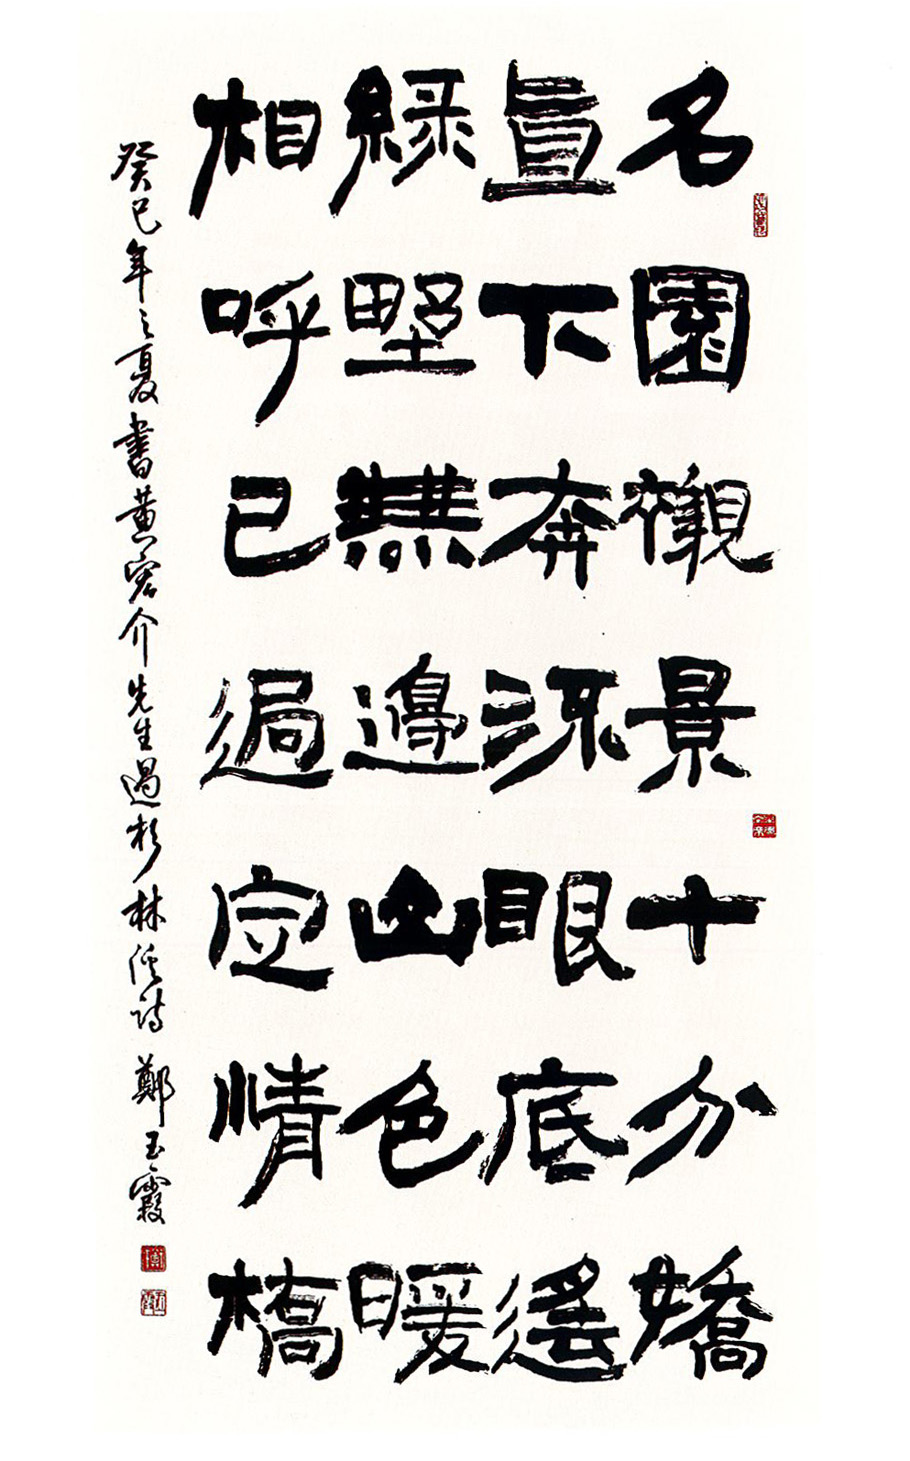 名園觀景十分嬌
直下奔流眼底遙
綠野無邊山色暖
相呼已過定情橋
癸巳年之夏書黃宏介先生過杉林溪詩 鄭玉霞